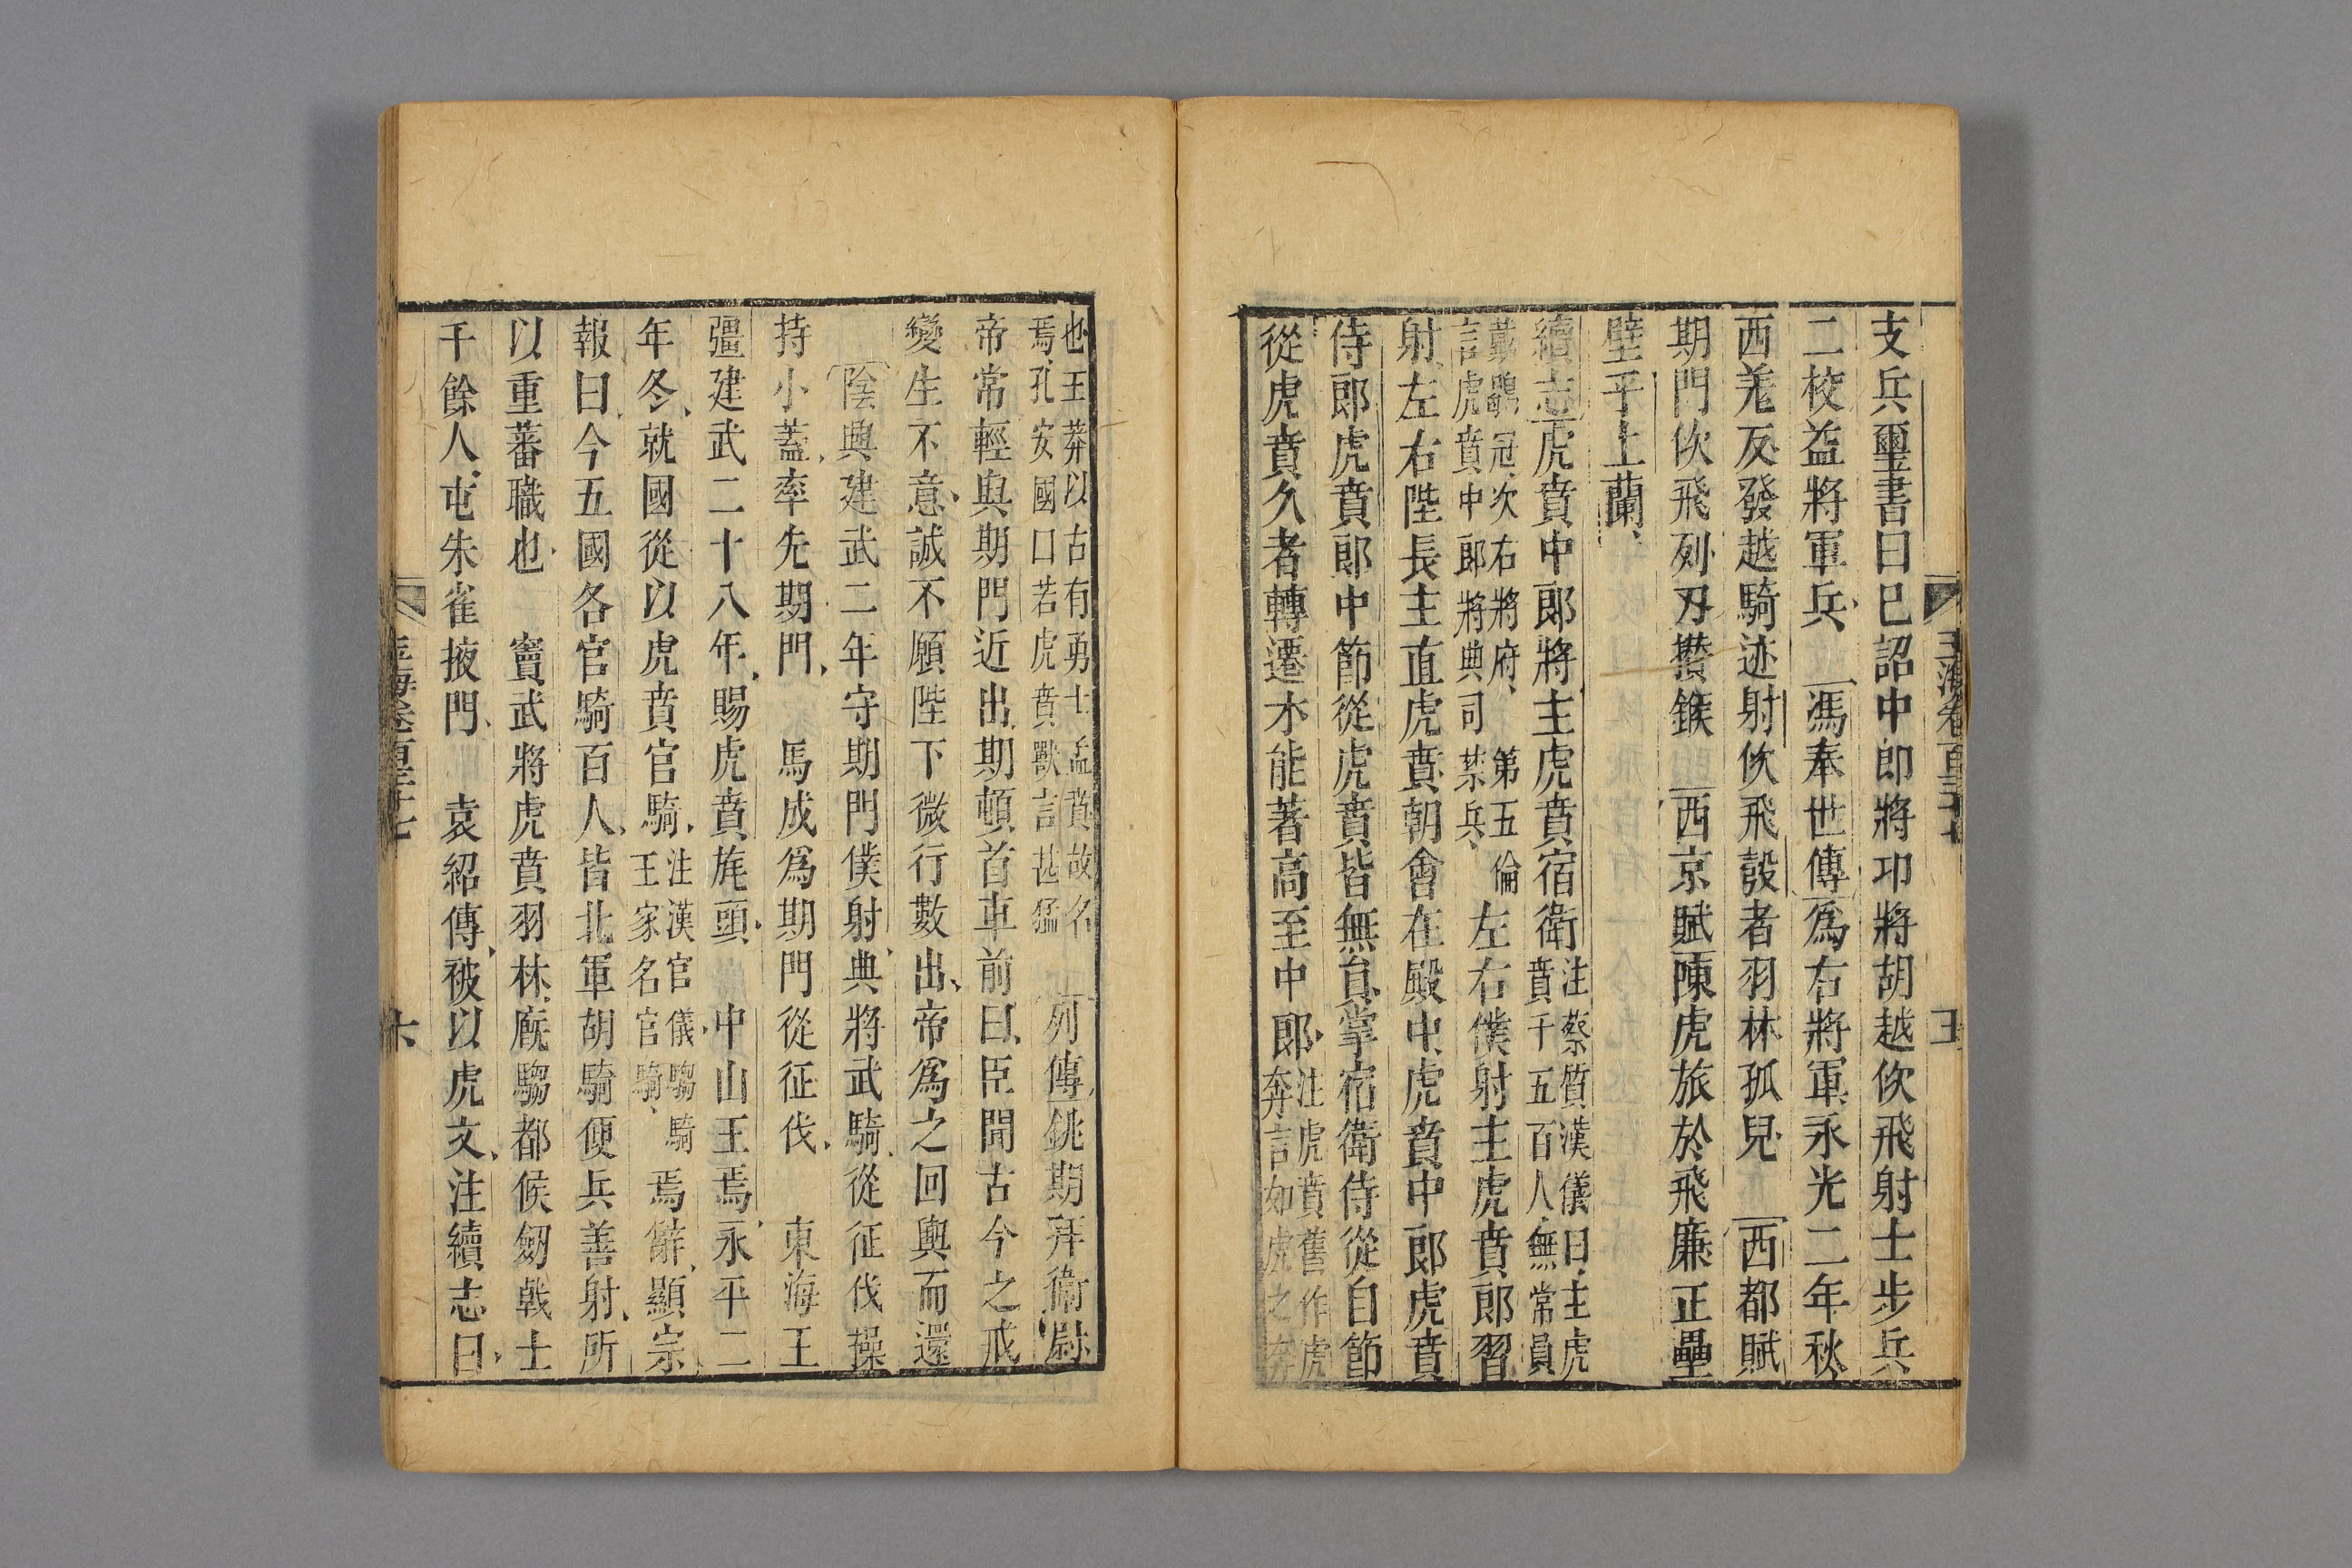 玉海卷百三十七
支兵璽書曰已詔中郎將卬將胡越佽飛射士步兵
二校益將軍兵 馮奉世傳爲右將軍永光二年秋
西羌反發越騎迹射佽飛彀者羽林孤兒 西都賦
期門佽飛列刃攢鍭 西京賦陳虎旅於飛廉正壘
壁乎上蘭
續志虎賁中郎將主虎賁宿衛注蔡質漢儀曰主虎
賁千五百人無常員
戴鶡冠次右將府 第五倫
言虎賁中郎將典司禁兵
左右僕射主虎賁郎習
射左右陛長主直虎賁朝會在殿中虎賁中郎虎賁
侍郎虎賁郎中節從虎賁皆無員掌宿衛侍從自節
從虎賁久者轉遷才能著高至中郎注虎賁舊作虎
奔言如虎之奔
也王莽以古有勇士孟賁故名
焉孔安國曰若虎賁獸言甚猛
列傳銚期拜衛尉
帝常輕與期門近出期頓首車前曰臣聞古今之戒
變生不意誠不願陛下微行數出帝爲之回輿而還
陰興建武二年守期門僕射典將武騎從征伐操
持小蓋率先期門 馬成爲期門從征伐 東海王
彊建武二十八年賜虎賁旄頭 中山王焉永平二
年冬就國從以虎賁官騎注漢官儀騶騎
王家名官騎
焉辭顯宗
報曰今五國各官騎百人皆北軍胡騎便兵善射所
以重蕃職也 竇武將虎賁羽林廐騶都候劒戟士
千餘人屯朱雀掖門 袁紹傳被以虎文注續志曰
玉海卷百三十七
六